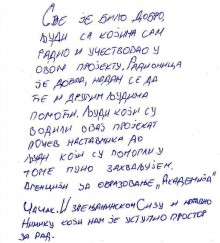 Све је било добро,
људи са којима сам
радио и учествовао у
овом пројекту. Радионица
је добра, надам се да
ће и другим људима
помоћи. Људи који су
водили овај пројекат
почев наставника до
људи који су помогли у
томе пуно захваљујем.
Агенцији за образовање „Академија"
Чачак. И зрењанинском Сизу и
Нишку који нам је уступио простор
за рад.